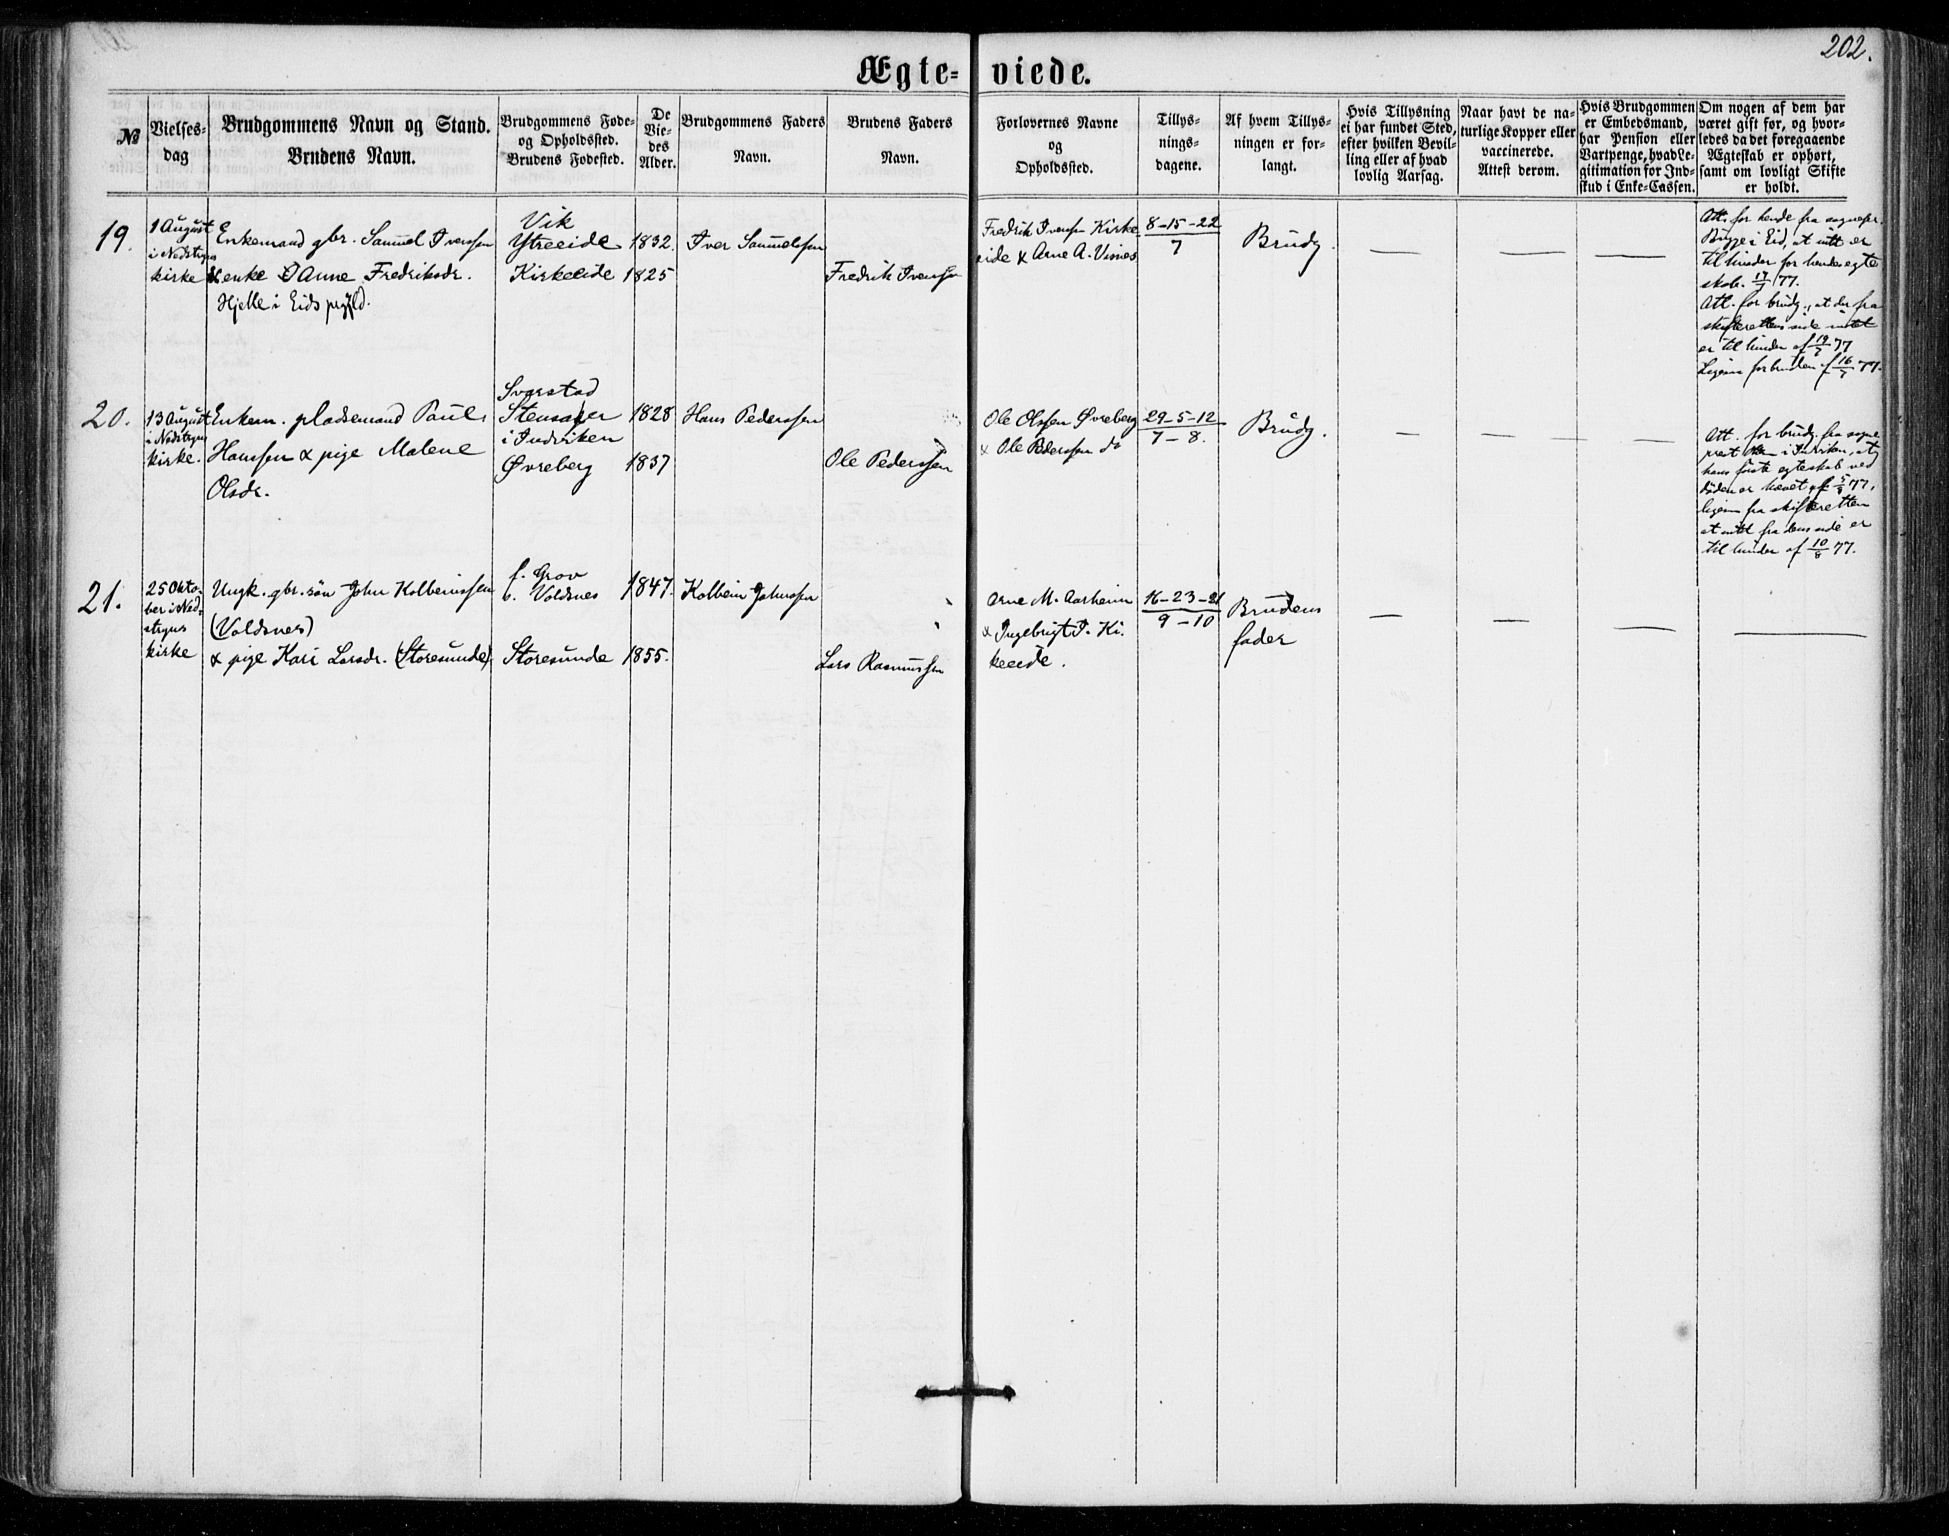 202.
Ægte- viede.
№
Vielses-
dag
Brudgommens Navn og Stand.
Brudens Navn.
Brudgommens Føde-
og Opholdssted.
Brudens Fødested.
De
Vie-
des
Alder.
Brudgommens Faders
Navn.
Brudens Faders
Navn.
Forlovernes Navne
og
Opholdssted.
Tillys-
nings-
dagene.
Af hvem Tillys-
ningen er for-
langt.
Hvis Tillysning
ei har fundet Sted,
efter hvilken Bevil-
ling eller af hvad
lovlig Aarsag.
Naar havt de na-
turlige Kopper eller
vaccinerede.
Attest derom.
Hvis Brudgommen
er Embedsmand,
har Pension eller
Vartpenge, hvad Le-
gitimation for Ind-
skud i Enke-Cassen.
Om nogen af dem har
været gift før, og hvor-
ledes da det foregaaende
Ægteskab er ophørt,
samt om lovligt Skifte
er holdt.
19.
1 August
i Nedstryns
kirke
Enkemand gbr. Samuel Iverssen
& enke Anne Fredriksdr.
Hjelle i Eids prgjld.
Vik
Ytreeide
Kirkeeide
1832.
1825
Iver Samuelssen
Fredrik Iverssen
Fredrik Iverssen Kirke
eide & Arne A. Vinnes
8-15-22
7
Brudg.
— — —
Att. for hende fra sognepr.
Bugge i Eid, at intet er
til hinder for hendes egte
skab. 17/7 77.
Att. for brudg., at der fra
skifterettens side intet
er til hinder af 19/7 77
Ligesaa for bruden af 16/7 77.
20.
13 August
i Nedstryns
kirke.
Enkem. pladsemand Paul
Hanssen & pige Malene
Olsdr.
Svarstad
Stensager
i Indviken
Øvreberg
1828
1837
Hans Pederssen
Ole Pederssen
Ole Olssen Øvreberg
& Ole Pederssen do
29-5-12
7-8.
Brudg.
— — — —
Att. for brudg. fra sogne
prest i Indviken, at
hans første egteskab ved
døden er hævet af 5/8 77,
ligesaa fra skifteretten
at intet fra dens side er
til hinder af 10/8 77.
21.
25 Okto-
ber i Ned-
stryns
kirke
Ungk. gbr.søn John Kolbeinssen
(Voldsnes)
& pige Kari Larsdr. (Storesunde)
f. Grov
b. Voldsnes
Storesunde
1847.
1855.
Kolbein Johnssen
Lars Rasmussen
Arne M. Aarheim
& Ingebrigt J. Kir
keeide.
16-23-21
9-10
Brudens
fader
— — — —